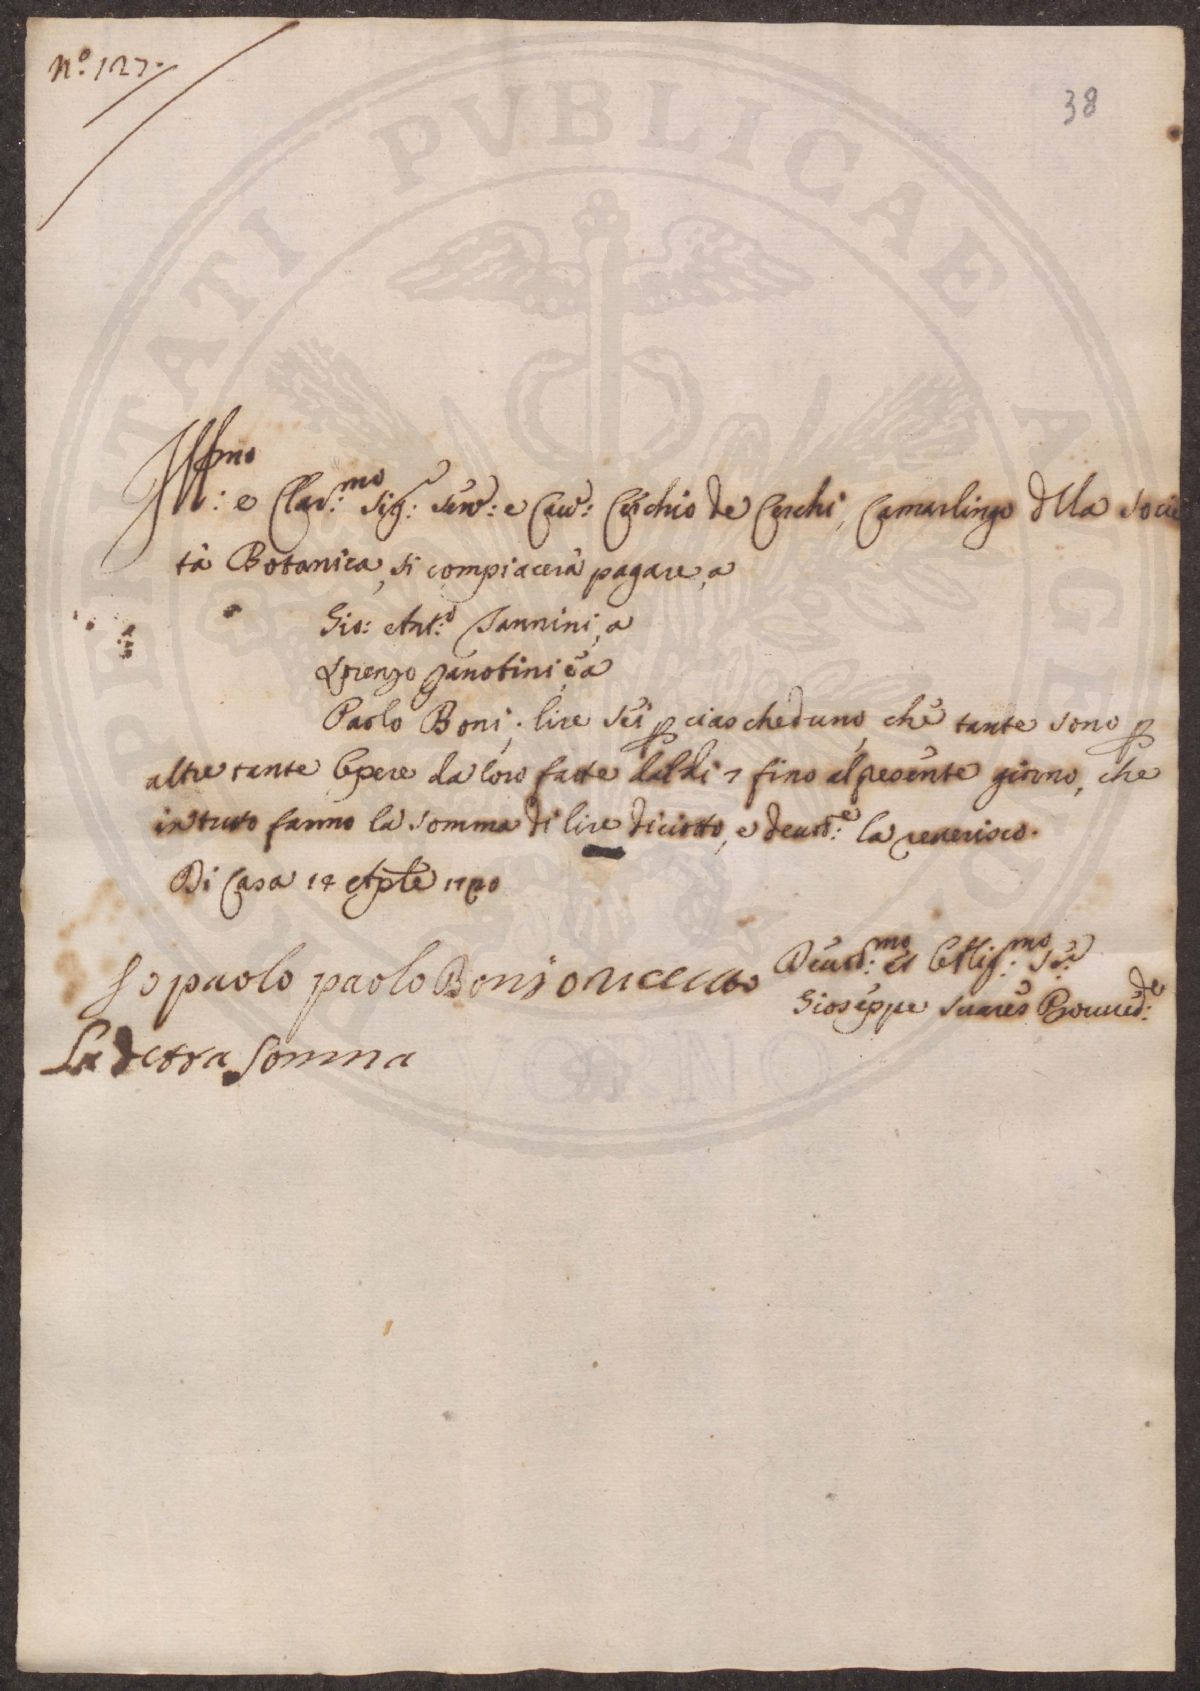 N.º 127.
38
Ill.mo e Clar.mo Sig.r Sen.e e Cav.e Cerchio de Cerchi, Camarlingo della Socie
tà Botanica, si compiacerà pagare, a
Gio: Ant.o Nannini, a
Lorenzo Zanobini, e a
Paolo Boni, lire sei p ciascheduno, che tante sono p
altre tante Opere da loro fatte dal dì 7 fino al presente giorno, che
in tutto fanno la somma di lire diciotto, e devot.e la reverisco.
Di Casa 14 Aple
Devot.mo et Obblig.mo Se.re
Gioseppe Suares Provved.re
Jo paolo paolo Boni o riceuto
La detta Somma
PVBLICAE